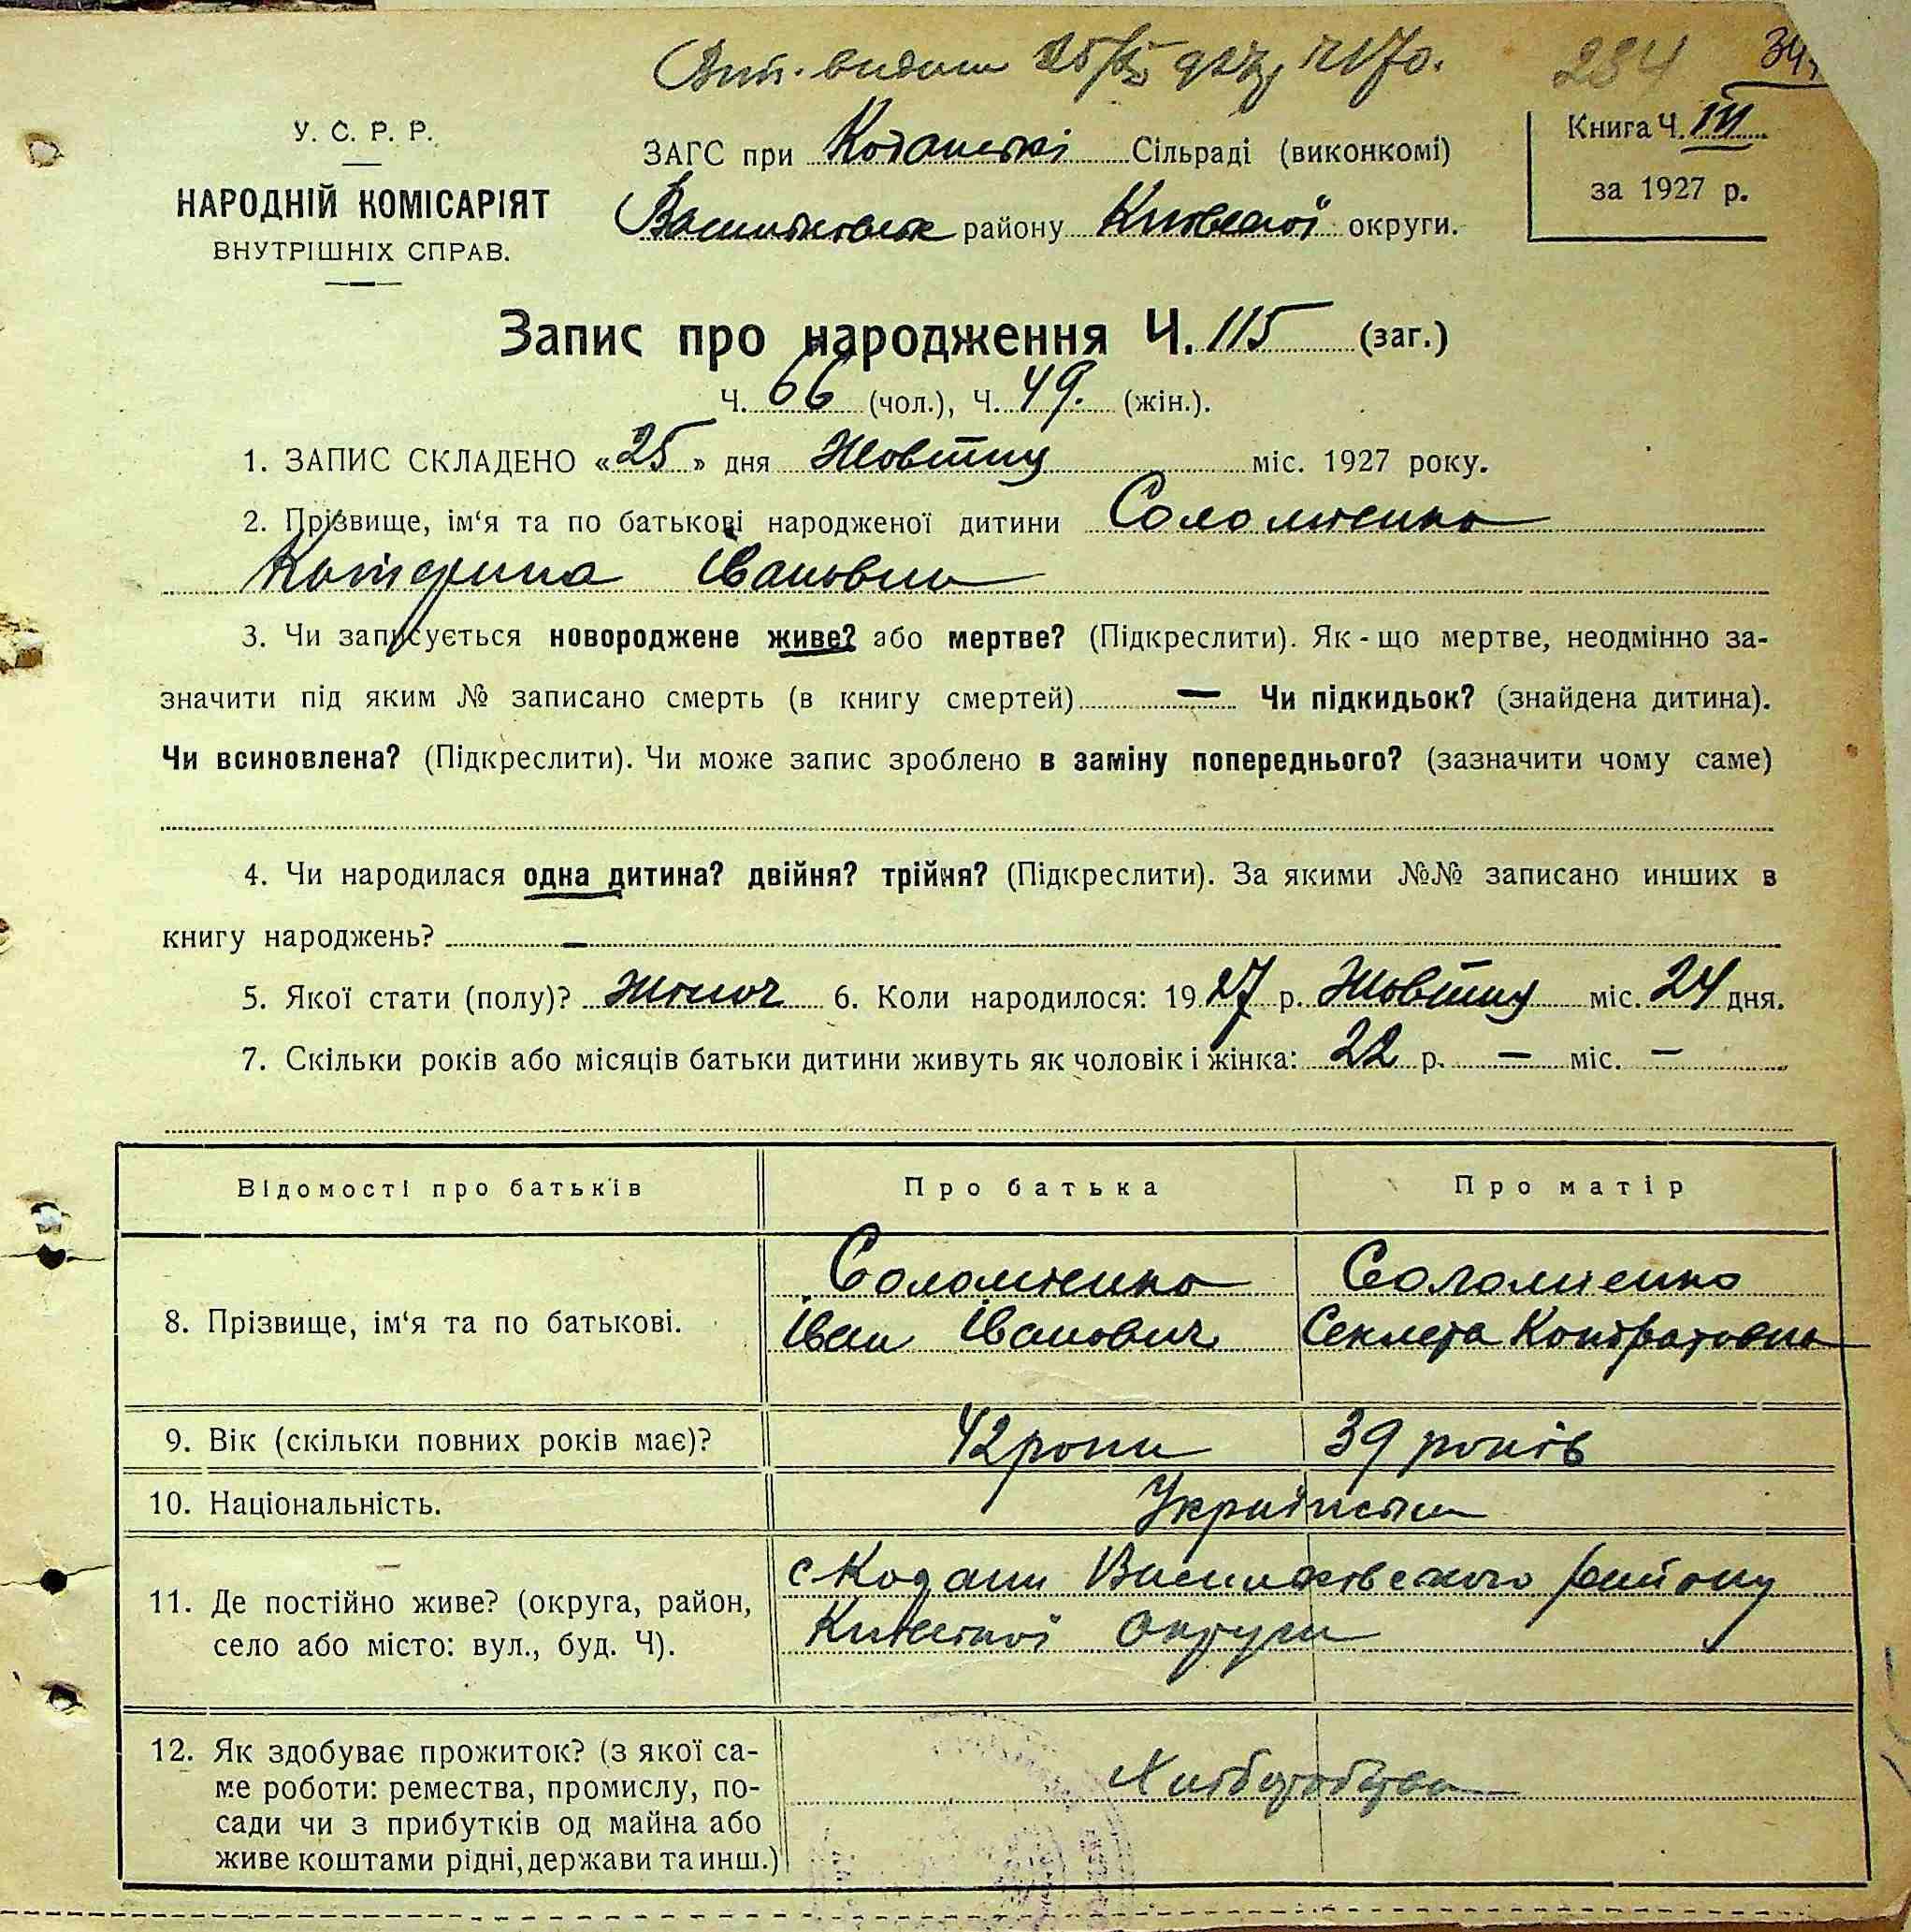 Вип. видано 25/X 927 р. № 170. 284 34
У. С. Р. Р.
НАРОДНІЙ КОМІСАРІЯТ
ВНУТРІШНІХ СПРАВ.
ЗАГС при Кодацькі Сільраді (виконкомі)
району Київської округи.
Книга Ч. III
за 1927 р.
Запис про народження Ч. 115 (заг.)
Ч. 66 (чол.), Ч. 49. (жін.).
1. ЗАПИС СКЛАДЕНО «25» дня Жовтню міс. 1927 року.
2. Прізвище, ім‘я та по батькові народженої дитини Соломієнко
Катерина Івановна
3. Чи записується новороджене живе? або мертве? (Підкреслити). Як - що мертве, неодмінно за-
значити під яким № записано смерть (в книгу смертей) — Чи підкидьок? (знайдена дитина).
Чи всиновлена? (Підкреслити). Чи може запис зроблено в заміну попереднього? (зазначити чому саме)
4. Чи народилася одна дитина? двійня? трійня? (Підкреслити). За якими №№ записано инших в
книгу народжень? —
5. Якої стати (полу)? жіноч 6. Коли народилося: 1927 р. Жовтню міс. 24 дня.
7. Скільки років або місяців батьки дитини живуть як чоловік і жінка: 22 р. — міс. —
Відомості про батьків Про батька Про матір
8. Прізвище, ім‘я та по батькові.
Соломієнко
Іван Іванович
Соломієнко
Секлета Кондратовна
9. Вік (скільки повних років має)? 42 роки 39 років
10. Національність. Українська
11. Де постійно живе? (округа, район,
село або місто: вул., буд. Ч).
с Кодаки Васильківського району
Київської округи
12. Як здобуває прожиток? (з якої са-
ме роботи: ремества, промислу, по-
сади чи з прибутків од майна або
живе коштами рідні, держави та инш.)
Хліборобство